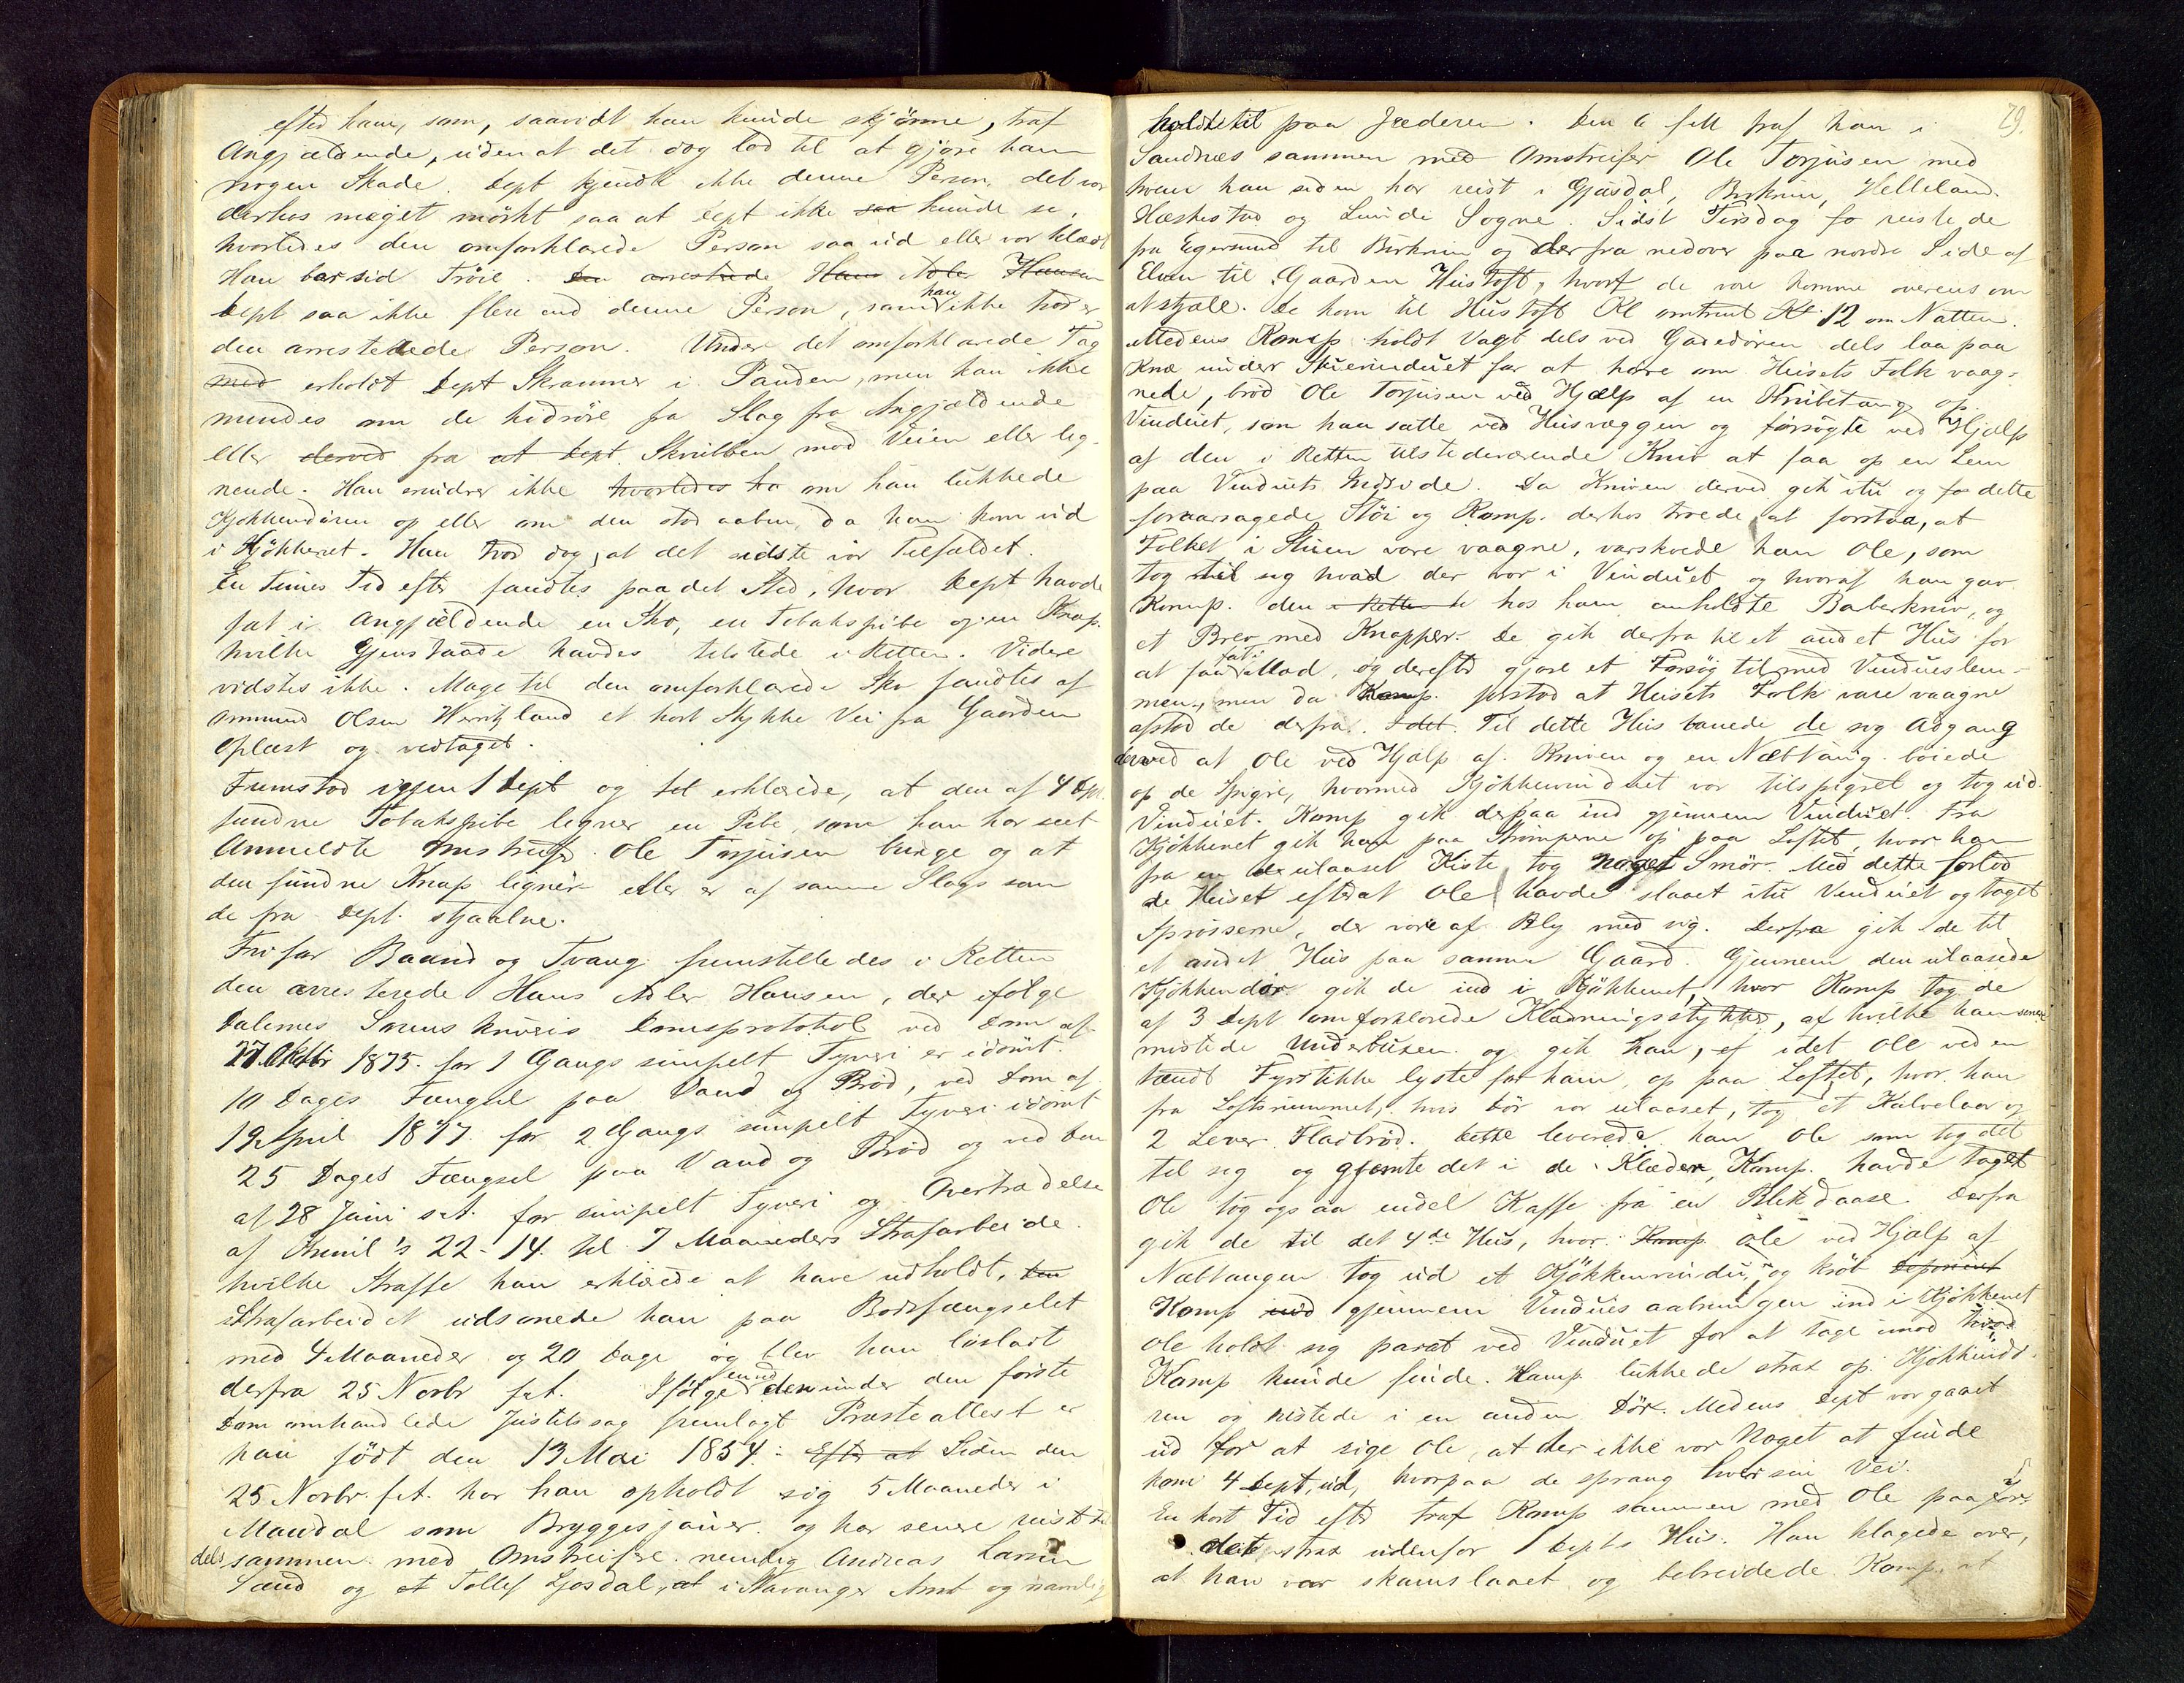 efter ham, som, saavidt han kunde skjönne, traf
Angjældende, uden at det dog lod til at gjöre ham
nogen Skade. Dept kjendte ikke denne Person, det var
derhos meget mörkt saa at Dept ikke saa kunde se,
hvorledes den omforklarede Person saa ud eller var klædt
Han bar sid Tröie. Den arresterede Hans Adler Hansen
Dept saa ikke flere end denne Person, som han ikke tror er
den arresterede Person. Under det omforklarede Tag
med erholdt Dept Skrammer i Panden, men kan ikke
mindes om de hidröre fra Slag fra Angjældende
eller derved fra at Dept. Skrubben mod Veien eller lig-
nende. Han erindrer ikke hvorledes ha om han lukkede
Kjökkendören op eller om den stod aaben, da han kom ud
i Kjökkenet. Han tror dog, at det sidste var Tilfældet.
En Times Tid efter fandtes paa det Sted, hvor Dept havde
fat i Angjældende en Sko, en Tobakspibe og en Knap.
hvilke Gjenstande havdes tilstede i Retten. Videre
vidstes ikke. Mage til den omforklarede Sko fandtes af
Ommund Olsen et kort Stykke Vei fra Gaarden
Oplæst og vedtaget.
Fremstod igjen 1 Dept og erklærede, at den af 4 Dept
fundne Tobakspibe ligner en Pibe, som han har seet
Anmeldte Omstreifer Ole Torjusen bruge og at
den fundne Knap ligner eller er af samme Slags som
de fra Dept. stjaalne.
Fri for Baand og Tvang fremstilledes i Retten
den arresterede Hans Adler Hansen, der ifölge
Dalernes Sorenskriveris Domsprotokol ved Dom af
27 Oktbr 1875 for 1 Gangs simpelt Tyveri er idömt
10 Dages Fængsel paa Vand og Bröd, ved Dom af
19 April 1877 for 2 Gangs simpelt Tyveri idömt
25 Dages Fængsel paa Vand og Bröd og ved Dom
af 28 Juni s.A. for simpelt Tyveri og Overtrædelse
af Kriml's 22-14 til 7 Maaneders Strafarbeide.
hvilke Straffe han erklærede at have udholdt, den
Strafarbeidet udsonede han paa Bodsfængselet
med 4 Maaneder og 20 Dage og blev han lösladt
derfra 25 Novbr f.A. Ifölge den under den förste
Dom omhandlede Justitssag fremlagt Præsteattest er
han födt den 13 Mai 1854. Efter at Siden den
25 Novbr. f.A. har han opholdt sig 5 Maaneder i
Mandal som Bryggesjauer og har senere reist
dels sammen med Omstreifere nemlig Andreas Larsen
Sand og et Tollef Gjosdal, at i Stavanger Amt og navnlig
79.
holdt til paa Jæderen. Den 6 traf han i
Sandnæs sammen med Omstreifer Ole Torjusen med
hvem han siden har reist i Gjæsdal, Birkrem, Helleland
Hæskestad og Lunde Sogne. Sidst Tirsdag reiste de
fra Egersund til Birkrem og derfra nedover paa nordre Side af
Elven til Gaarden Hustoft, hvor de vare komne overens om
at stjæle. De kom til Hustoft Kl omtrent Kl 12 om Natten.
Medens Kamp holdt Vagt dels ved Gadedören dels laa paa
Knæ under Stuevinduet for at höre om Husets Folk vaag-
nede, bröd Ole Torjusen ved Hjælp af en Knibetang op
Vinduet, som han satte ved Husvæggen og forsögte ved Hjælp
af den i Retten tilstedeværende Kniv at faa op en Lem
paa Vinduets Indside. Da Kniven derved gik itu og dette
foraarsagede Stöi og Kamp. derhos troede at forstaa, at
Folket i Stuen vare vaagne, varskoede han Ole, som
tog til sig hvad der var i Vinduet og hvoraf han gav
Kamp. den i Retten de hos ham anholdte Barberkniv, og
et Brev med Knapper. De gik derfra til et andet Hus for
at faa fat i Mad, og derefter gjöre et Forsög til med Vindueslem-
men, men da Kamp. forstod at Husets Folk vare vaagne
afstod de derfra. I det Til dette Hus banede de sig Adgang
derved at Ole ved Hjælp af Kniven og en Næbtang böiede
op de Spigre, hvormed Kjökkenvinduet var tilspigret og tog ud
Vinduet. Kamp gik derpaa ind gjennem Vinduet. Fra
Kjökkenet gik han paa Strömperne op paa Loftet, hvor han
fra en ulaaset Kiste tog noget Smör. Med dette forlod
de Huset efterat Ole havde slaaet itu Vinduet og taget
Sprosserne, der vare af Bly med sig. Derfra gik de til
et andet Hus paa samme Gaard. Gjennem den ulaasede
Kjökkendör gik de ind i Kjökkenet, hvor Kamp tog de
af 3 Dept omforklarede Klædningsstykker, af hvilke han senere
mistede Underbuxen og gik han, ef idet Ole ved en
tændt Fyrstikke lyste for ham, op paa Loftet, hvor han
fra Loftsrummet, hvis Dör var ulaaset, tog et Kalvelaar og
2 Lever Fladbröd. Dette leverede han Ole som tog det
til sig og gjemte det i de Klæder, Kamp. havde taget
Ole tog ogsaa endel Kaffe fra en Blikdaase. Derfra
gik de til det 4de Hus, hvor Kamp Ole ved Hjælp af
Næbtangen tog ud et Kjökkenvindu, og kröb Deponent
Kamp ind gjennem Vinduesaabningen ind i Kjökkenet
Ole holdt sig parat ved Vinduet for at tage imod hvad
Kamp kunde finde. Kamp lukkede strax op Kjökkendö-
ren og ristede i en anden Dör. Medens Dept var gaaet
ud for at sige Ole, at der ikke var Noget at finde
kom 4 Dept, ud, hvorpaa de sprang hver sin Vei.
En kort Tid efter traf Kamp sammen med Ole paa
det strax udenfor 1 Depts Hus. Han klagede over,
at han var skamslaaet og bebreidede Kamp. at